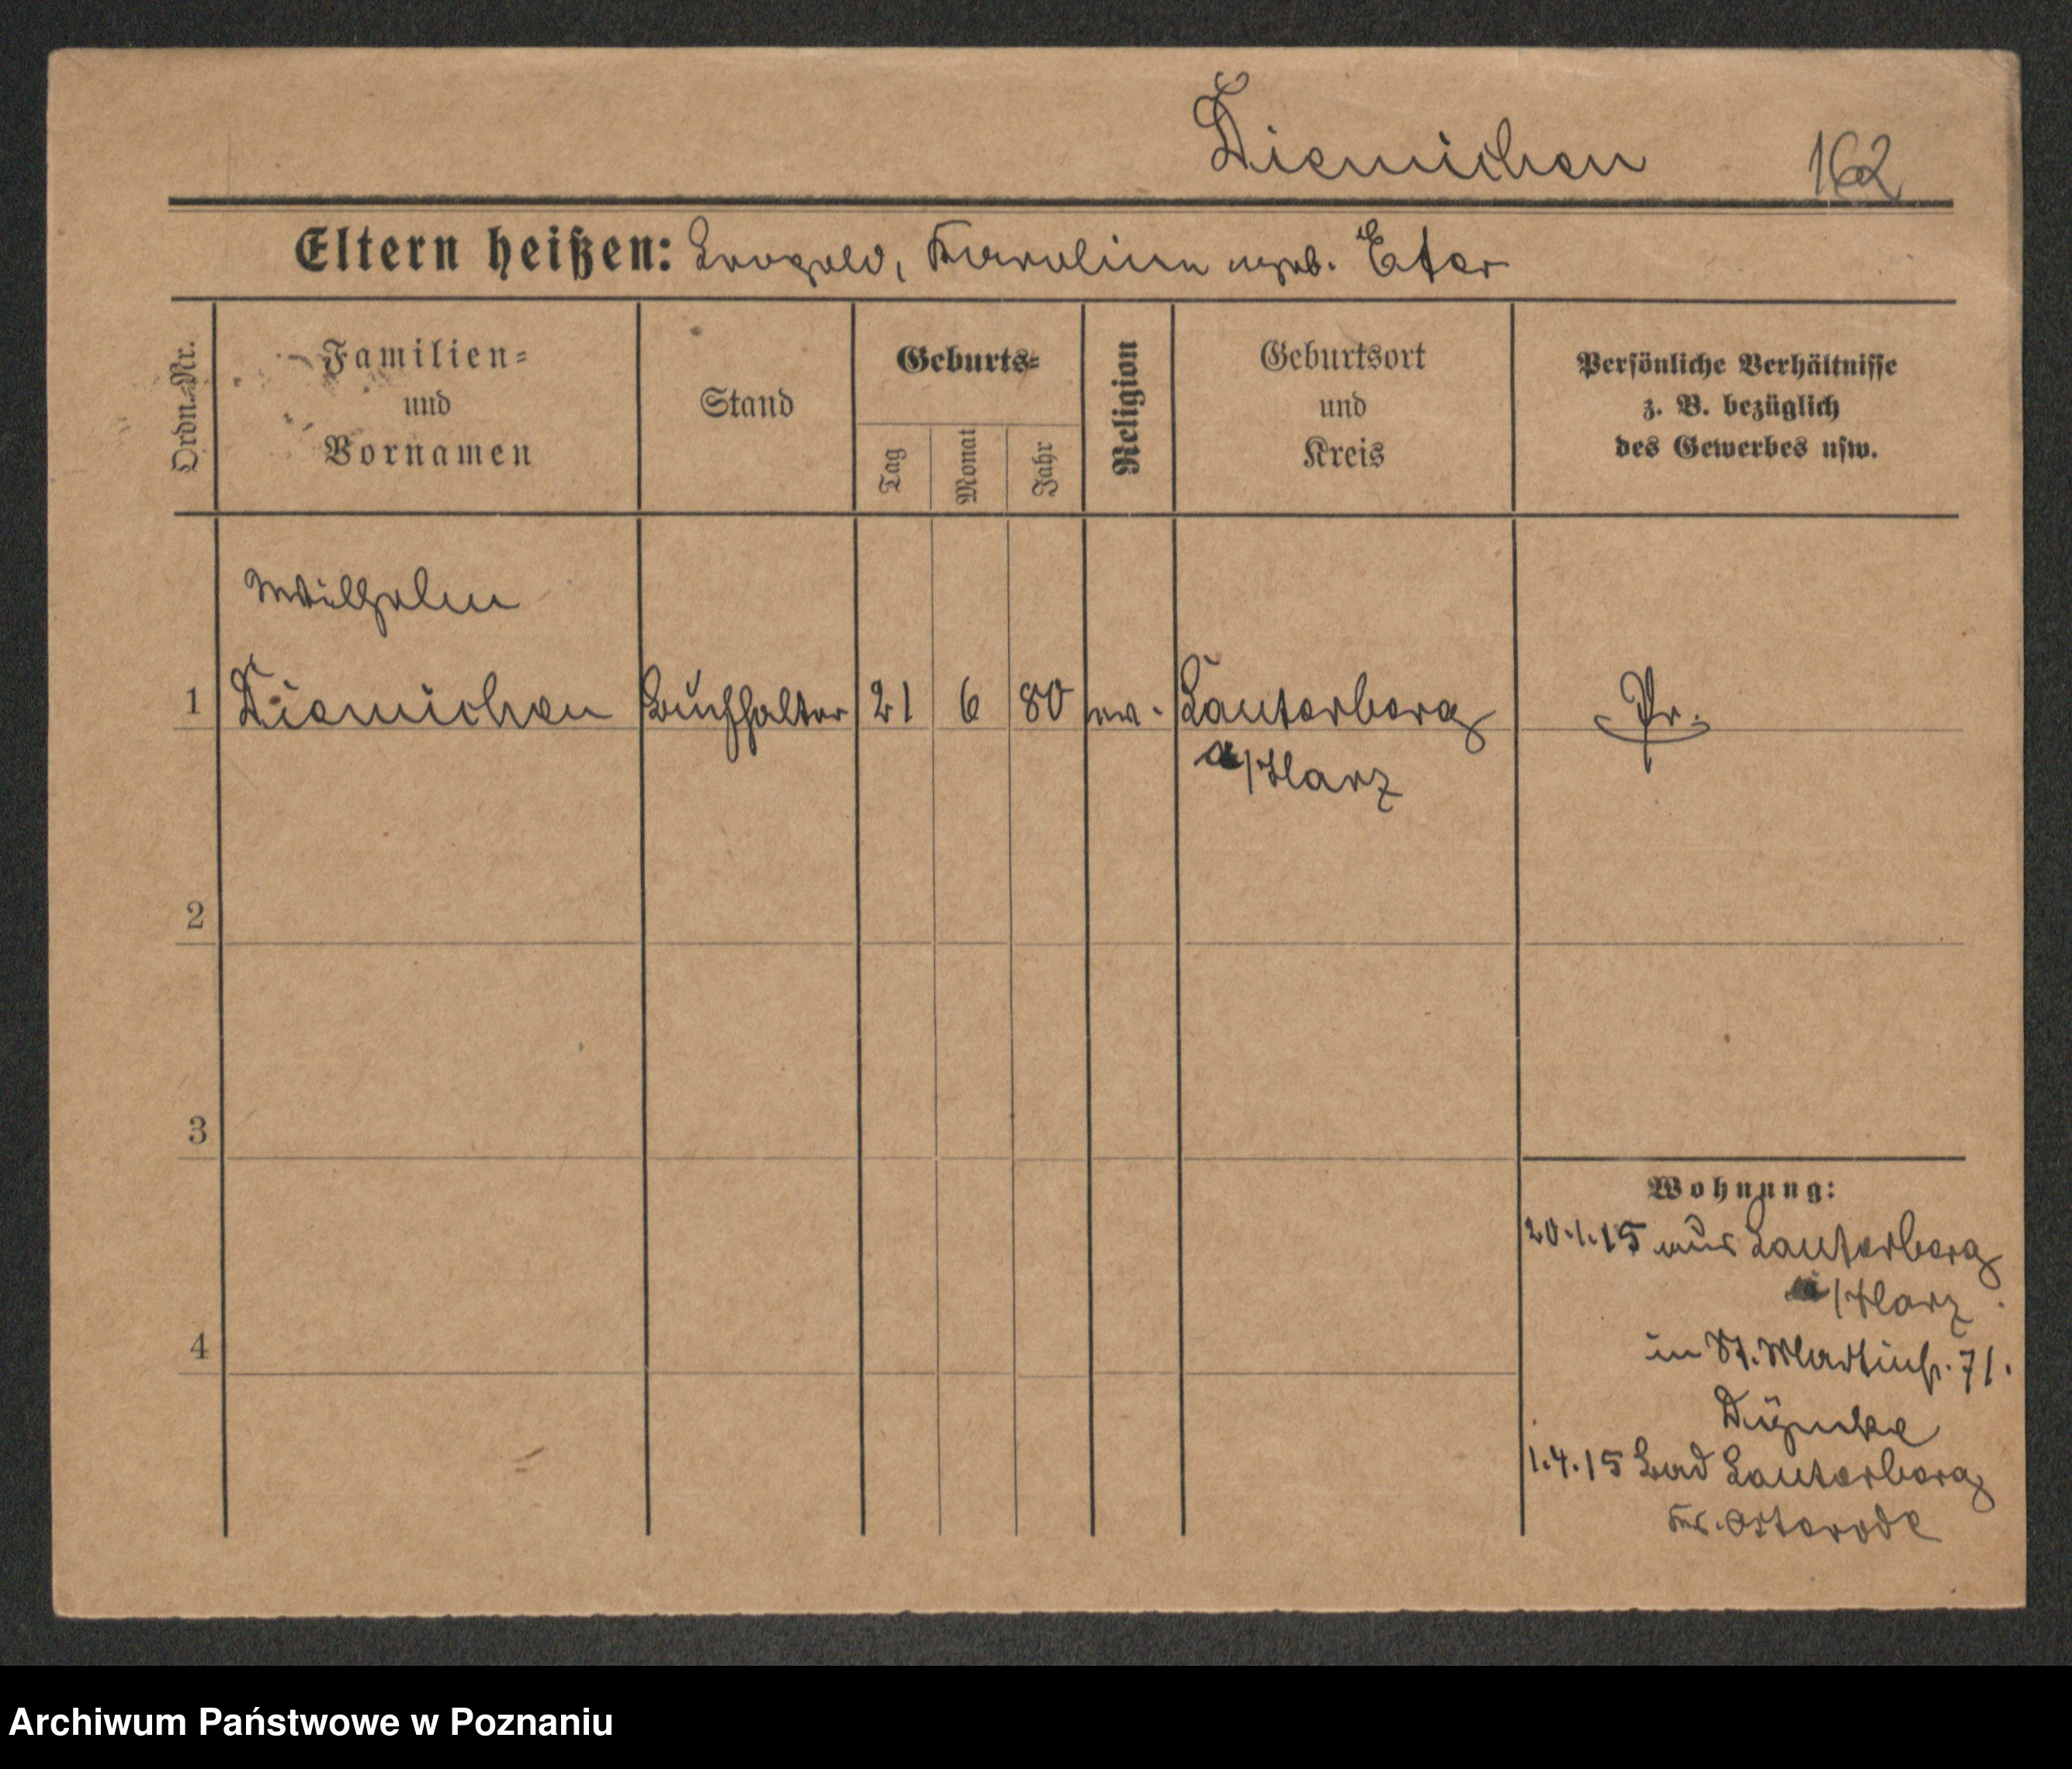 Diemichen 162
Eltern heißen: Leopold, Karoline geb. Eter
Ordn.-Nr.
Familien-
und
Vornamen
Stand
Geburts-
Tag
Monat
Jahr
Religion
Geburtsort
und
Kreis
Persönliche Verhältnisse
z. B. bezüglich
des Gewerbes usw.
Wilhelm
1 Diemichen Buchhalter 21 6 80 ev. Lauterberg Pr.
a/Harz
2
3
4
Wohnung:
20.1.15 aus Lauterberg
a/Harz
in St. Martinstr. 71.
1.4.15 Bad Lauterberg
Kr. Osterode
Archiwum Państwowe w Poznaniu